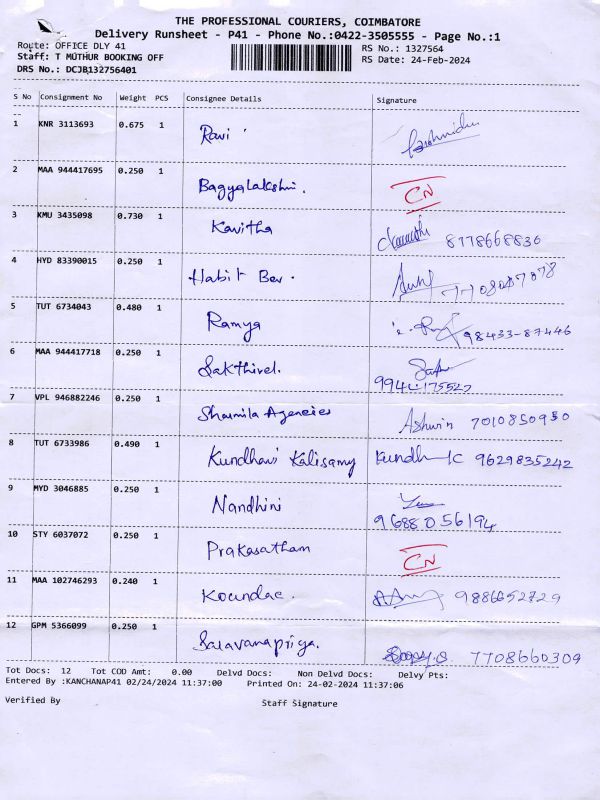 THE PROFESSIONAL COURIERS, COIMBATORE
Delivery Runsheet - P41 - Phone No.:0422-3505555 - Page No.:1
Route: OFFICE DLY 41
RS No.: 1327564
Staff: T MUTHUR BOOKING OFF
RS Date: 24-Feb-2024
DRS No.: DCJB132756401
S No Consignment No Weight PCS Consignee Details Signature
1 KNR 3113693 0.675 1 Ravi
2 MAA 944417695 0.250 1 Bagyalakshmi. CN
3 KMU 3435098 0.730 1 Kavitha 8778668836
4 HYD 83390015 0.250 1 Habit Bev.
5 TUT 6734043 0.480 1 Ramya 98433-87446
6 MAA 944417718 0.250 1 Sakthivel.
7 VPL 946882246 0.250 1 Sharmila Agencies Ashwin 7010850950
8 TUT 6733986 0.490 1 Kundhavi Kalisamy Kundh K 9629835242
9 MYD 3046885 0.250 1 Nandhini 9688056194
10 STY 6037072 0.250 1 Prakasatham CN
11 MAA 102746293 0.240 1 Koundac. 9886652729
12 GPM 5366099 0.250 1 Saravanapriya. 7708660309
Tot Docs: 12 Tot COD Amt: 0.00 Delvd Docs: Non Delvd Docs: Delvy Pts:
Entered By :KANCHANAP41 02/24/2024 11:37:00 Printed On: 24-02-2024 11:37:06
Verified By Staff Signature